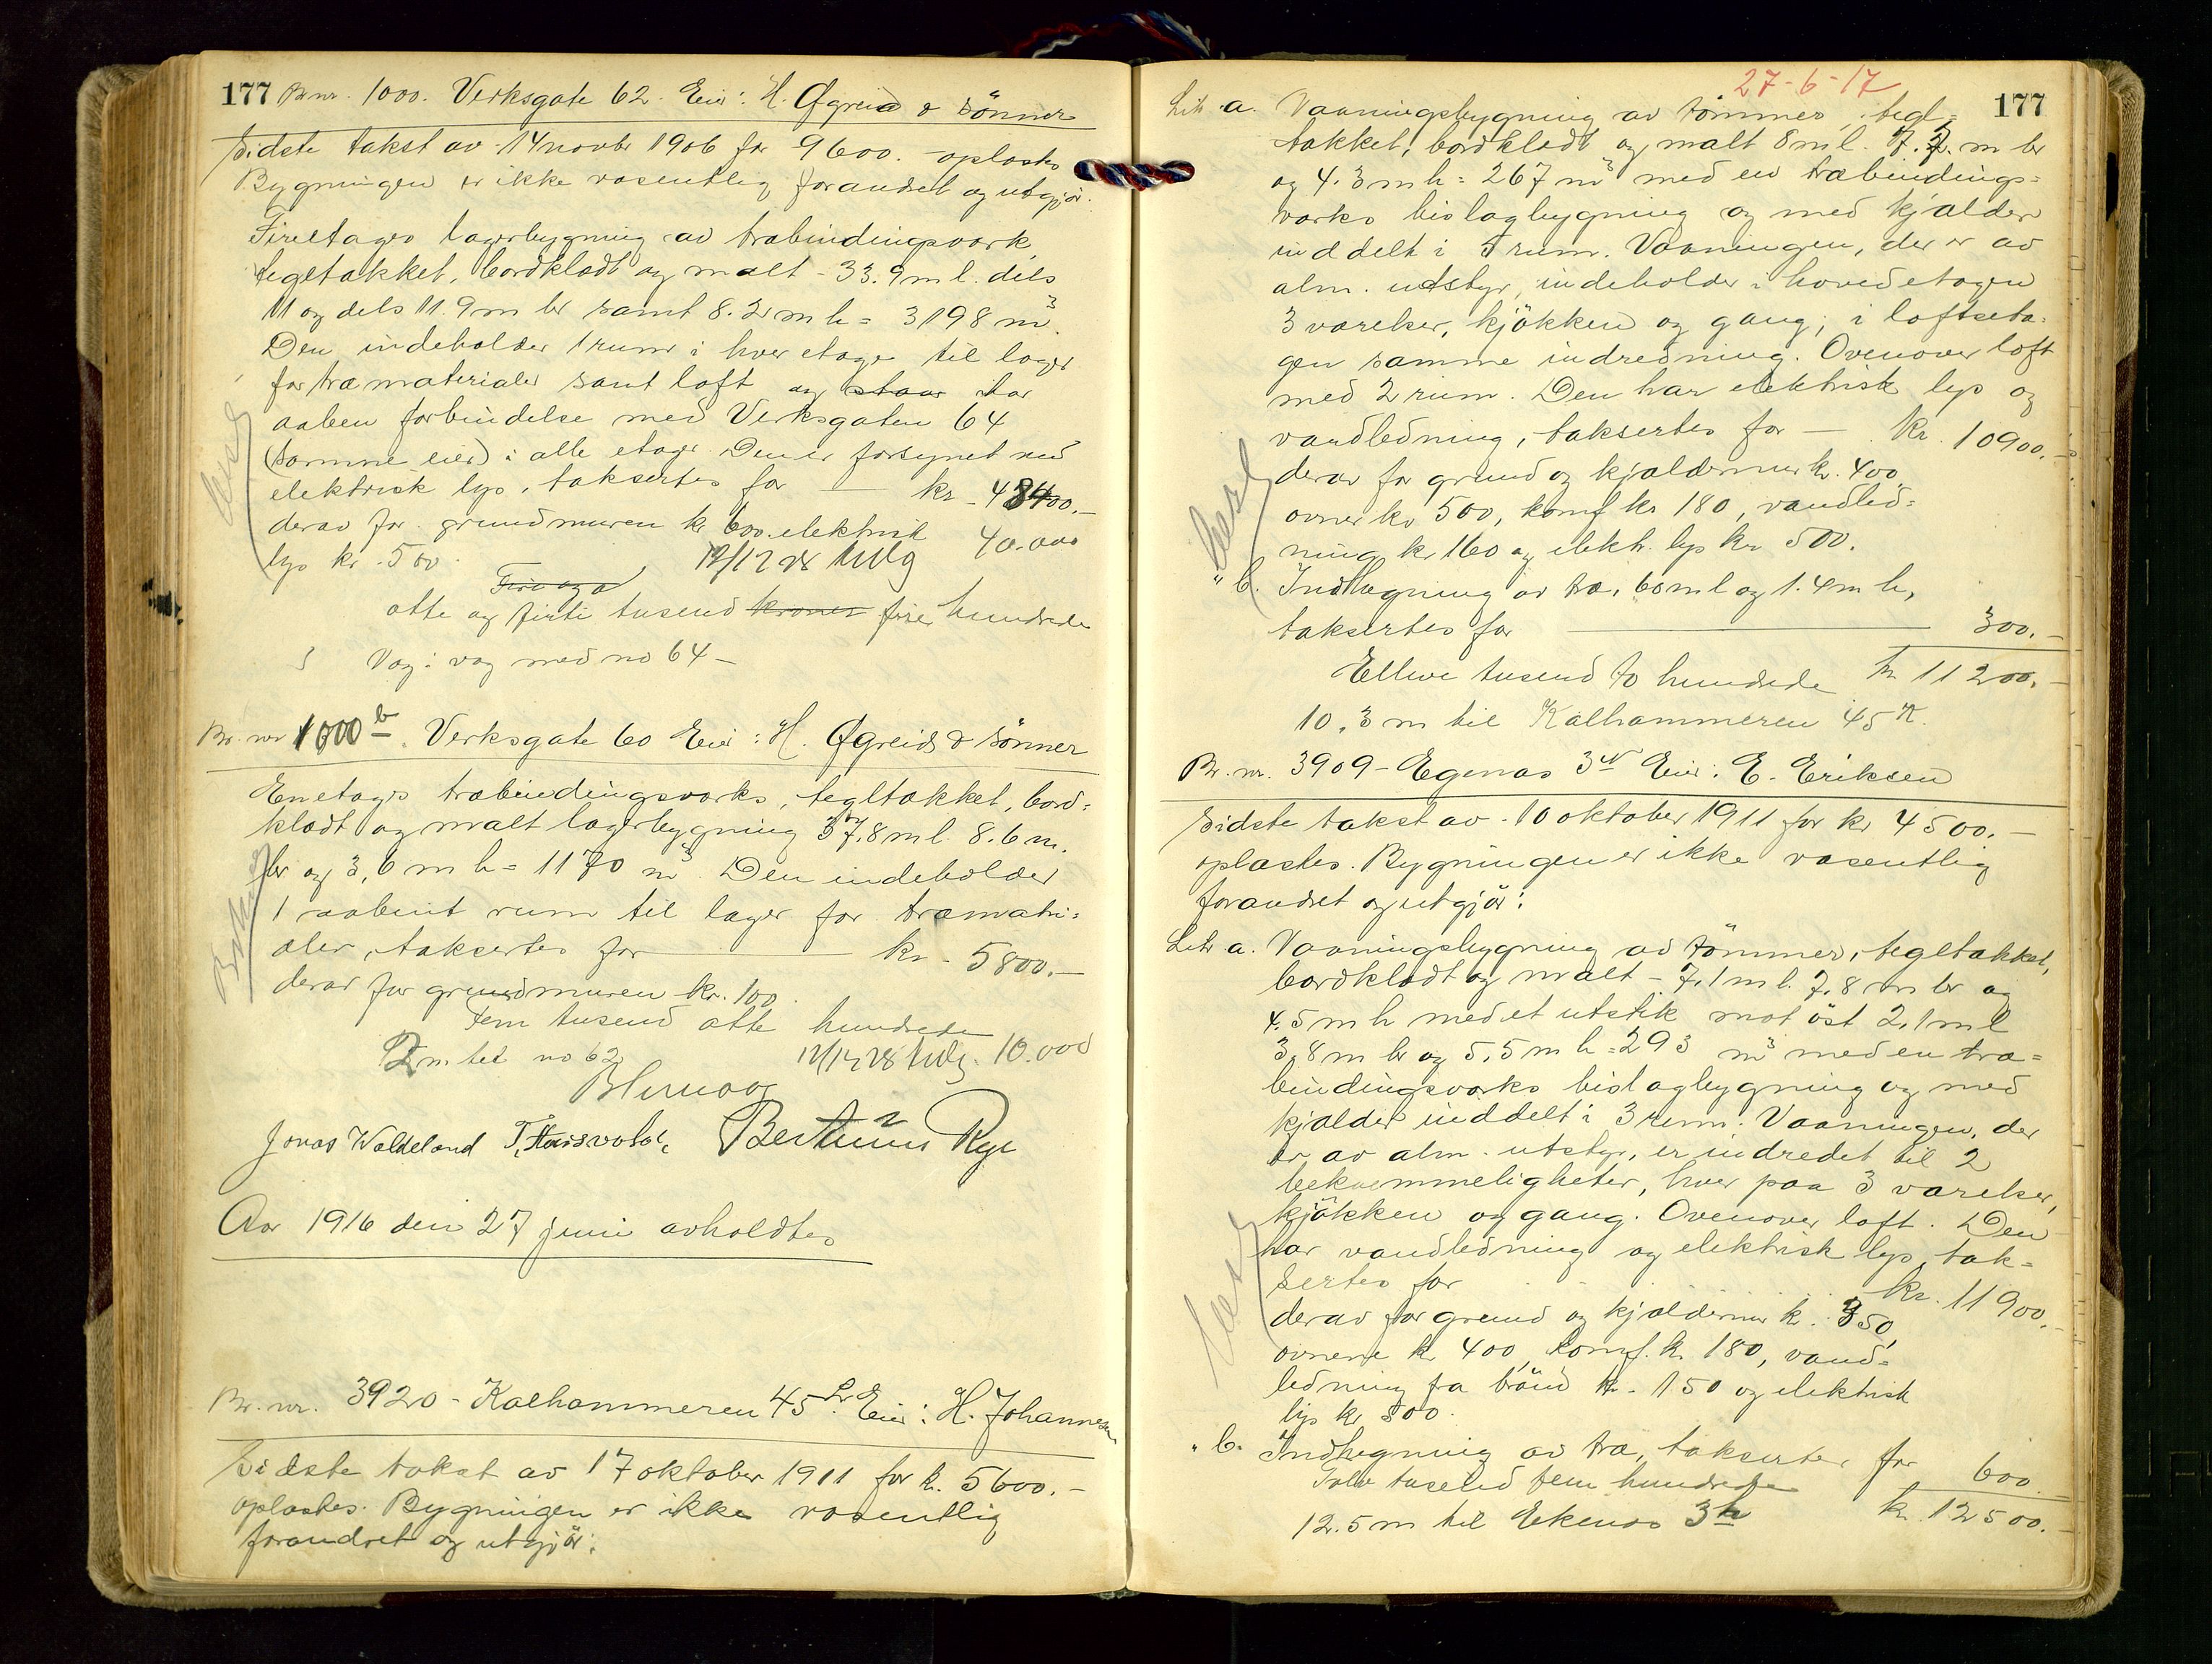 177 Br.nr. 1000. Verksgate 62. Eier: H. Øgreid & sönner
Sidste takst av 14 novbr 1906 for 9600.- oplæstes
Bygningen er ikke væsentlig forandret og utgjör:
Fireetages lagerbygning av træbindingsverk,
tegltækket, bordklædt og malt - 33.9 m l. dels
11 og dels 11.9 m br samt 8.2 m h = 3198 m³.
Den indeholder 1 rum i hver etage til lager
for træmaterialer samt loft og staar har
aaben forbindelse med Verksgaten 64
(samme eier) i alle etager. Den er forsynet med
elektrisk lys, taksertes for — kr - 48400.-
derav for grundmuren kr 600. elektrisk 40.000
lys kr. 500. 12/12 28
otte og firti tusend kroner fire hundrede
Væg i væg med no 64 -
Br. nr 1000 b. Verksgate 60 Eier: H. Øgreid & sönner
Enetages træbindingsverks, tegltækket, bord-
klædt og malt lagerbygning 37.8 m l. 8.6 m.
br og 3,6 m h = 1170 m³. Den indeholder
1 aabent rum til lager for træmateri-
aler, taksertes for — kr - 5800.-
derav for grundmuren kr. 100.
Fem tusend otte hundrede
2 m til no 62 12/12 28 10.000
Jonas Waldeland Bertinius Rege
Aar 1916 den 27 juni avholdtes
Br. nr. 3920 - Kalhammeren 45 Eier: H. Johannesen
Sidste takst av 17 oktober 1911 for kr. 5600.-
oplæstes. Bygningen er ikke væsentlig
forandret og utgjör:
27-6-17
177
Litr a. Vaaningsbygning av tömmer, tegl-
tækket, bordklædt og malt 8 m l. 7.7. m br
og 4.3 m h = 267 m³ med en træbindings-
verks bislagbygning og med kjælder
inddelt i 5 rum. Vaaningen, der er av
alm. udstyr, indeholder i hovedetagen
3 værelser, kjökken og gang, i loftseta-
gen samme indredning. Ovenover loft
med 2 rum. Den har elektrisk lys og
vandledning, taksertes for — kr. 10900.-
derav for grund og kjældermur kr. 400
ovner kr 500, komf kr 180, vandled-
ning kr 160 og elektr. lys kr 500.
" b. Indhegning av træ, 60 m l og 1.4 m h,
taksertes for — 300.-
Elleve tusend to hundrede kr 11200.-
10.3 m til Kalhammeren 45
Br. nr. 3909 - Egenæs 3 Eier: E. Eriksen
Sidste takst av 10 oktober 1911 for kr 4500.-
oplæstes. Bygningen er ikke væsentlig
forandret og utgjör:
Litr a. Vaaningsbygning av tömmer, tegltækket,
bordklædt og malt - 7,1 m l. 7,8 m br og
4.5 m h med et utstik mot öst 2,1 m l
3,8 m br og 5,5 m h = 293 m³ med en træ-
bindingsverks bislagbygning og med
kjælder inddelt i 3 rum. Vaaningen, der
er av alm. utstyr, er indredet til 2
bekvemmeligheter, hver paa 3 værelser,
kjökken og gang. Ovenover loft. Den
har vandledning og elektrisk lys, tak-
sertes for kr. 11900.-
derav for grund og kjældermur kr. 350,
ovnene kr 400, komf. kr 180, vand-
ledning fra brönd kr. 150 og elektrisk
lys kr 500.
" b. Indhegning av træ, taksertes for 600.
Tolv tusend fem hundrede
12.5 m til Ekenæs 3 kr. 12500.-